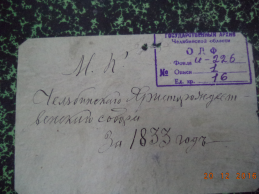 ГОСУДАРСТВЕННЫЙ АРХИВ
Челябинской области
О Л Ф
Фонд И-226
№ Опись 1
Ед. хр. 16
М. К.
Челябинскаго Христорождест-
венскаго собора
За 1833 годъ
24